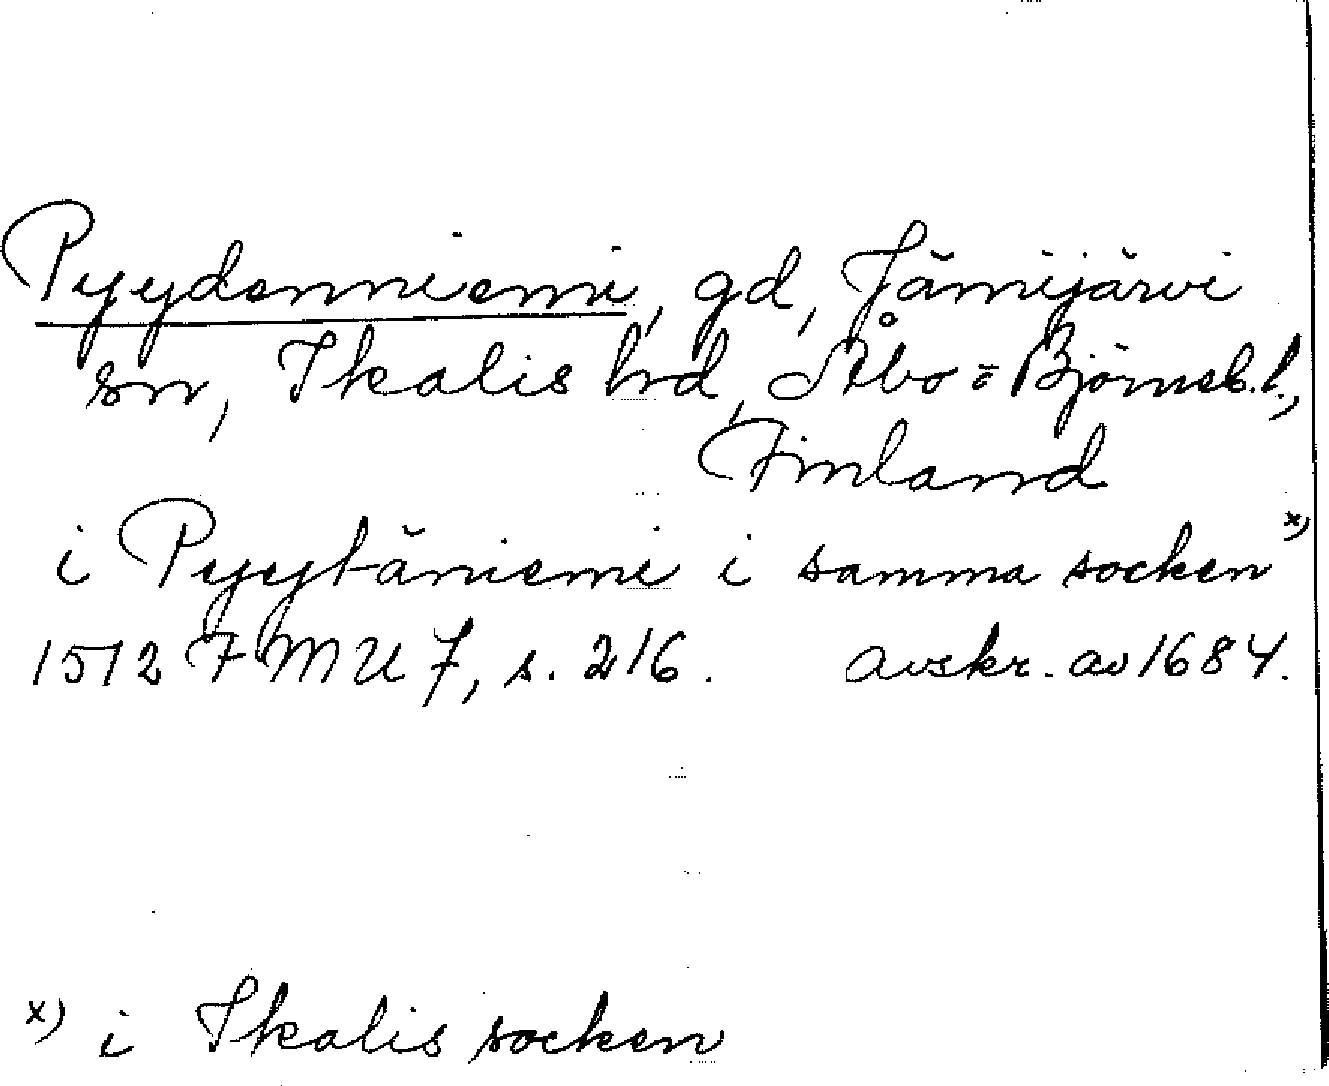 Pyydenniemi, gd, Jämijärvi
sn, Ikalis hrd, Åbo = Björneb. l.,
Finland
i Pyytäniemi i samma socken x)
1512 FMU 7, s. 216. avskr. av 1684.
x) i Ikalis socken